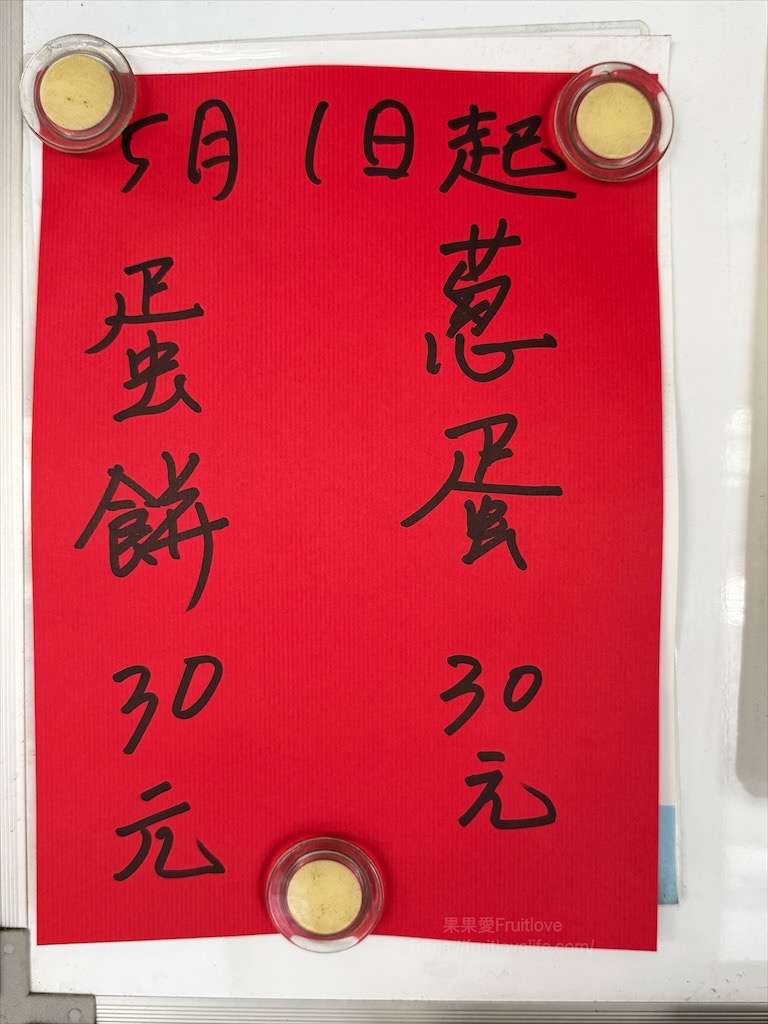 5月1日起
蔥蛋 30元
蛋餅 30元
果果愛Fruitlove